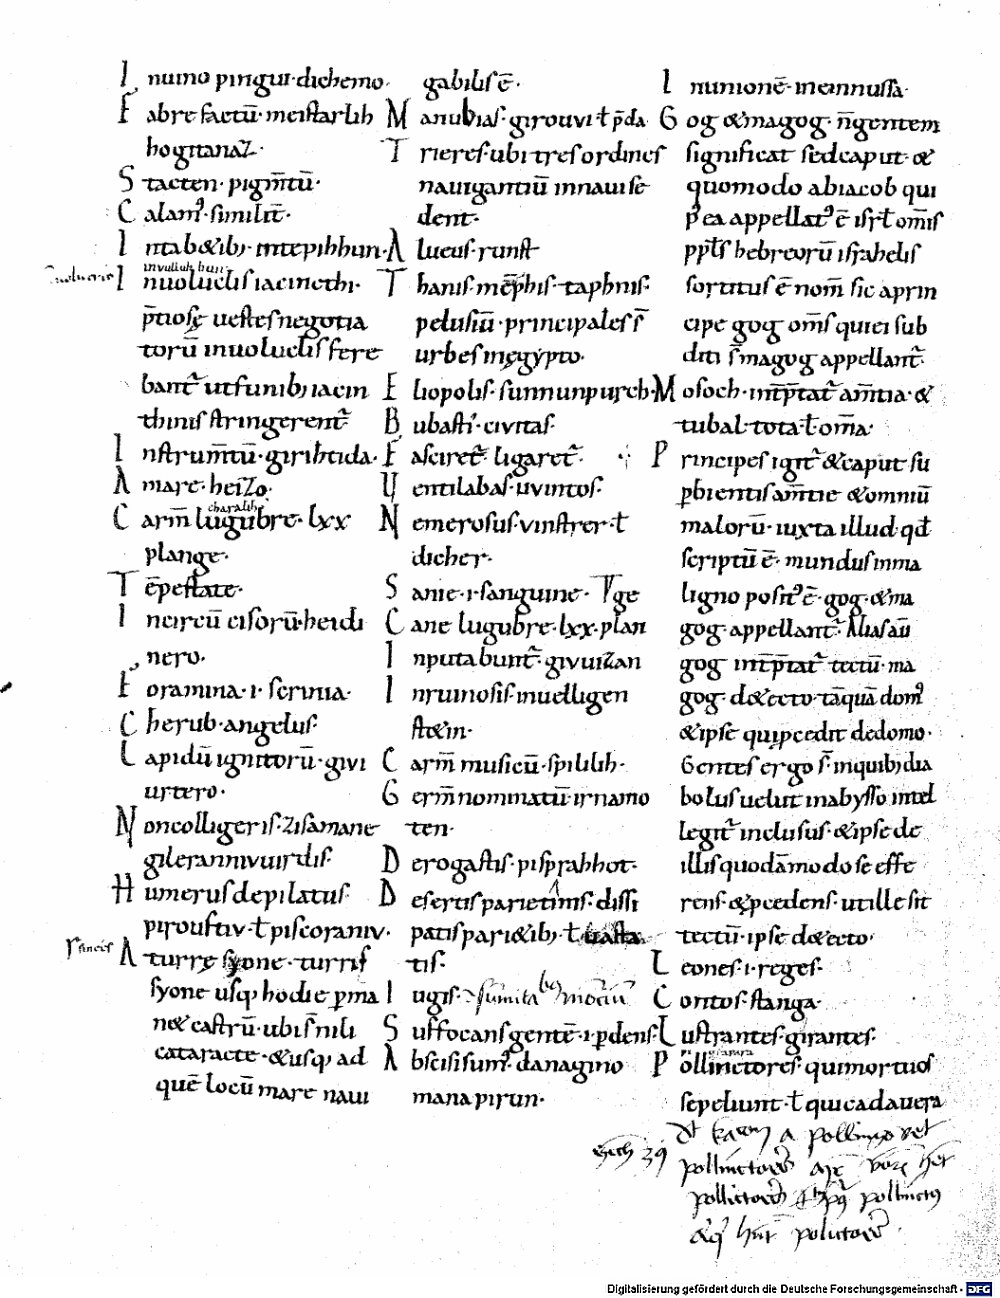 I numo pingui· dichemo·
F abre factū· meistarlih
hognanaz·
S tacten· pigm̄tū·
C alam᷒· similit̄·
I ntab&ib; intepihhun·
inuuluh hun
I nuoluclis iacincthi·
p̄tiosę uestes negotia
torū inuoluclis fere
bant᷑ ut funib; iacin
thinis stringerent᷑
I nstrum̄tū· girihtida·
A mare· heizo·
charalih
C arm̄ lugubre· lxx
plange·
T ēpestate·
I ncircū cisorū· heidi
nero·
F oramina· i· scrinia·
C herub· angelus·
L apidū ignitorū· givi
urtero·
N oncolligeris· zisamane
gilerannivuirdis·
H umerus depilatus·
pirouftiv· ƚ piscoraniv·
A turrę syone· turris
syone usq; hodie p̱ma
n& castrū· ubi s̄ nili
cataracte· & usq; ad
quē locū mare naui
gabilis ē·
M anubias· girouvi ƚ p̄da
T rieres· ubi tres ordines
nauigantiū in naui se
dent·
A lueus· runst
T hanis· mēphis· taphnis·
pelusiū· principales s̄
urbes in ęgypto·
E liopolis· sunnunpurch·
B ubasti· civitas·
F asciret᷑· ligaret᷑·
U entilabas· uvintos·
N emerosus· vinstrer· ƚ
dicher·
S anie· i· sanguine·
C ane lugubre· lxx· plan ge
I nputabunt᷑· givuizan
I nruinosis· inuelligen
st&in·
C arm̄ musicū· spililih·
G erm̄ nominatū· ir namo
ten·
D erogastis· pisprahhot·
D esertis pari&inis· dissi
patis pari&ib; ƚ uasta
tis·
I ugis· sūmitatib; mōtiū
S uffocans gentē· i· p̱dens·
A bscisi sum᷒· danagino
mana pirun·
I nunionē· in einnussa·
G og & magog· n̄ gentem
significat sed caput· &
quomodo ab iacob qui
p̄ ea appellat᷒ ē isrƚ om̄is
ppƚs hebreorū israhelis
sortitus ē nom̄ sic a prin
cipe gog om̄s qui ei sub
diti s̄ magog appellant᷑·
M osoch· int̄p̄tat᷑ am̄tia· &
tubal· tota ƚ om̄a·
P rincipes igit᷑ & caput su
p̱bientis am̄tie & omniū
malorū· iuxta illud qđ
scriptū ē· mundus in ma
ligno posit᷒ ē· gog· & ma
gog· appellant᷑·
gog int̄p̄tat᷑ tectū· ma
gog· de tecto· tāquā dom᷒
& ipse qui p̱cedit de domo·
Gentes ergo s̄ in quib; dia
bolus uelut in abysso intel
legit᷑ inclusus· & ipse de
illis quodāmodo se effe
rens· & p̱cedens· ut ille sit
tectū· ipse de tecto·
L eones· i· reges·
C ontos· stanga·
L ustrantes· girantes·
P ollinctores· qui mortuos
sepeliunt· ƚ qui cadauera
a pollingo
pollinctores
pollictores
polutores·
Digitalisierung gefördert durch die Deutsche Forschungsgemeinschaft - DFG